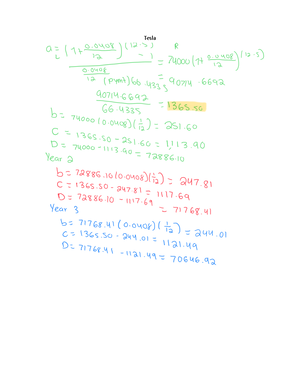 Tesla
a = (1 + 0.0408/12)^(12·5) - 1 / 0.0408/12 = 74000 (1 + 0.0408/12)^(12·5)
(pymt) 66.4335 = 90714.6692
90714.6692 / 66.4335 = 1365.50
b = 74000 (0.0408) (1/12) = 251.60
C = 1365.50 - 251.60 = 1,113.90
D = 74000 - 1113.90 = 72886.10
Year 2
b = 72886.10 (0.0408) (1/12) = 247.81
C = 1365.50 - 247.81 = 1117.69
D = 72886.10 - 1117.69 = 71768.41
Year 3
b = 71768.41 (0.0408) (1/12) = 244.01
C = 1365.50 - 244.01 = 1121.49
D = 71768.41 - 1121.49 = 70646.92